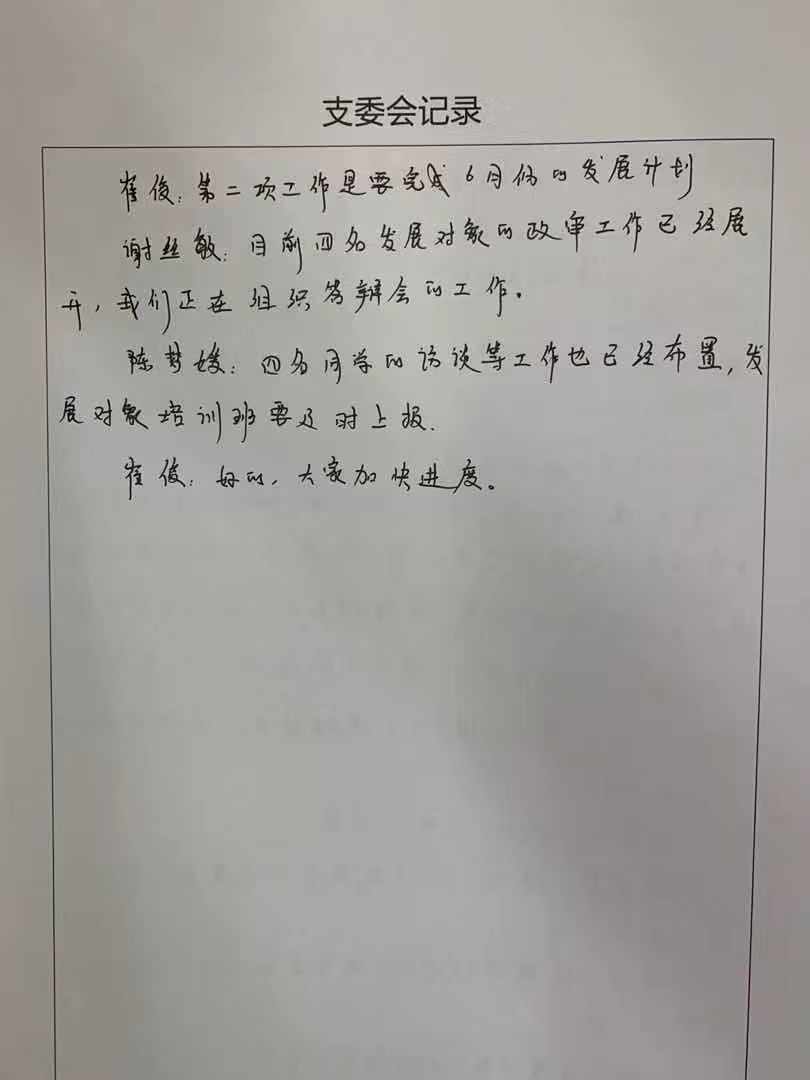 支委会记录
崔俊：第二项工作是要完成6月份的发展计划
谢丝敏：目前四名发展对象的政审工作已经展
开，我们正在组织答辩会的工作。
陈梦媛：四名同学的访谈等工作也已经布置，发
展对象培训班要及时上报.
崔俊：好的，大家加快进度。